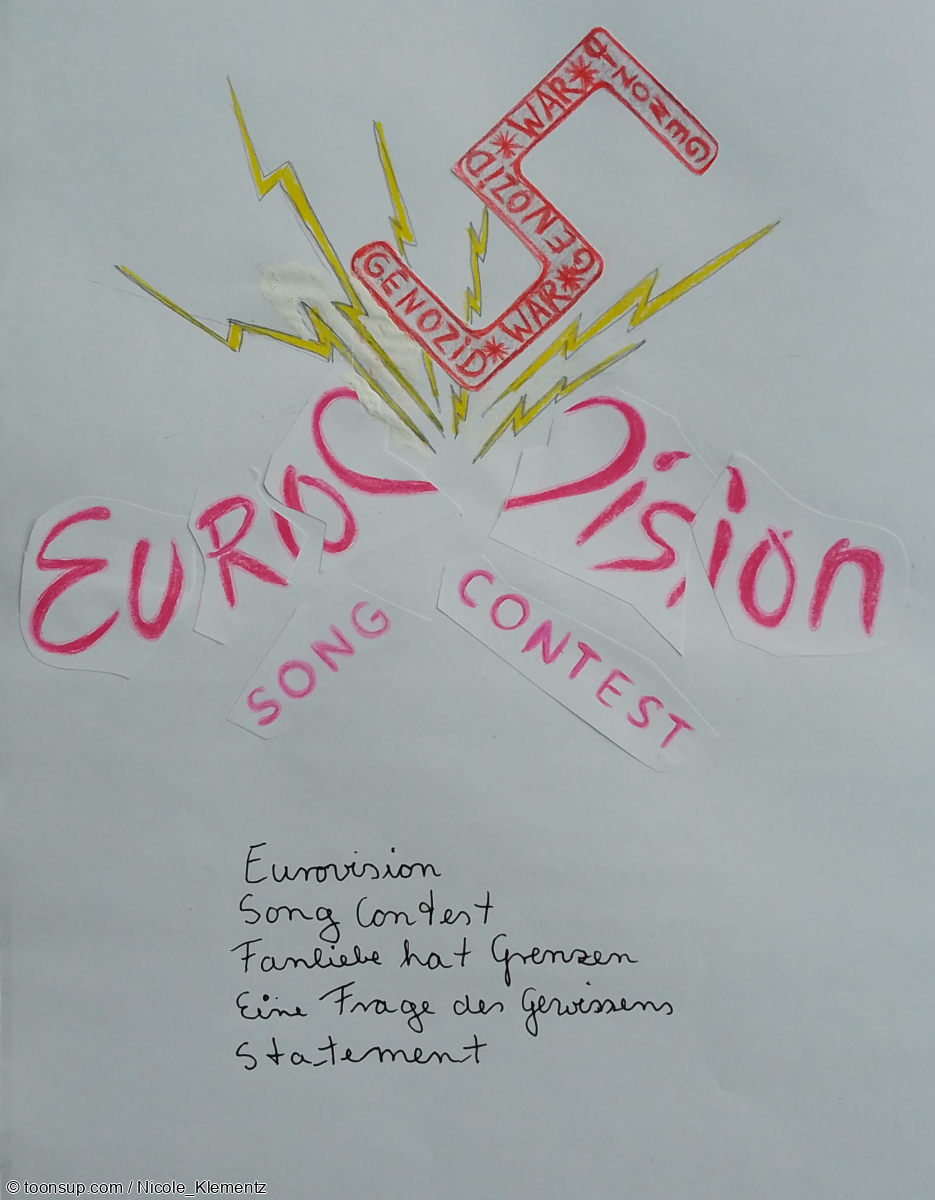 GENOZID * WAR * GENOZID * WAR * GENOZID
EUROVISION
SONG CONTEST
Eurovision
Song Contest
Fanliebe hat Grenzen
Eine Frage des Gewissens
Statement
© toonsup.com / Nicole_Klementz